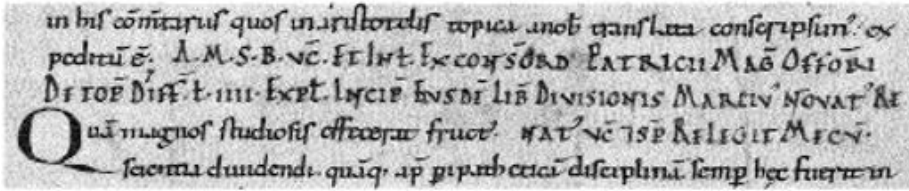 in his cōm̄tariis quos in aristotelis topica a nob̄ translata conscripsim᷒. ex
peditū ē. A.M.S.B. VC̄. ET INL̄. EXCONSŌRD PATRICII MAḠ OFFORI
DE TOP̄ DIFF̄. L. IIII. EXPL̄. INCIP̄ EIVSDĒ LIB̄ DIVISIONIS MARCIV᷒ NOVAT᷒ RE
Quā magnos studiosis afferat fruct᷒. NAT᷒ VC̄ ISP̄ RELEGIT MECV̄.
scientia diuidendi quāq; ap̄ peripatheticā disciplinā semp hęc fuerit in